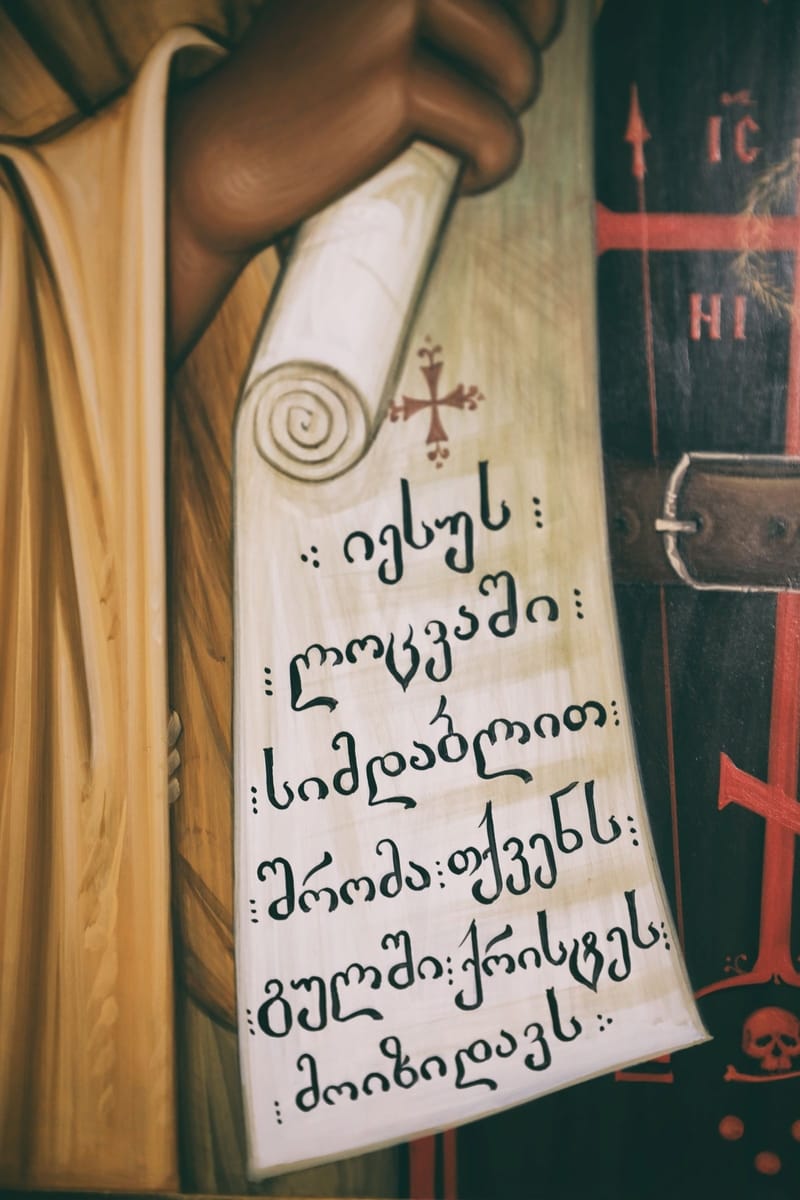 იესუს
ლოცვაში
სიმდაბლით
შრომა თქვენს
გულში ქრისტეს
მოიზიდავს
IC
НІ